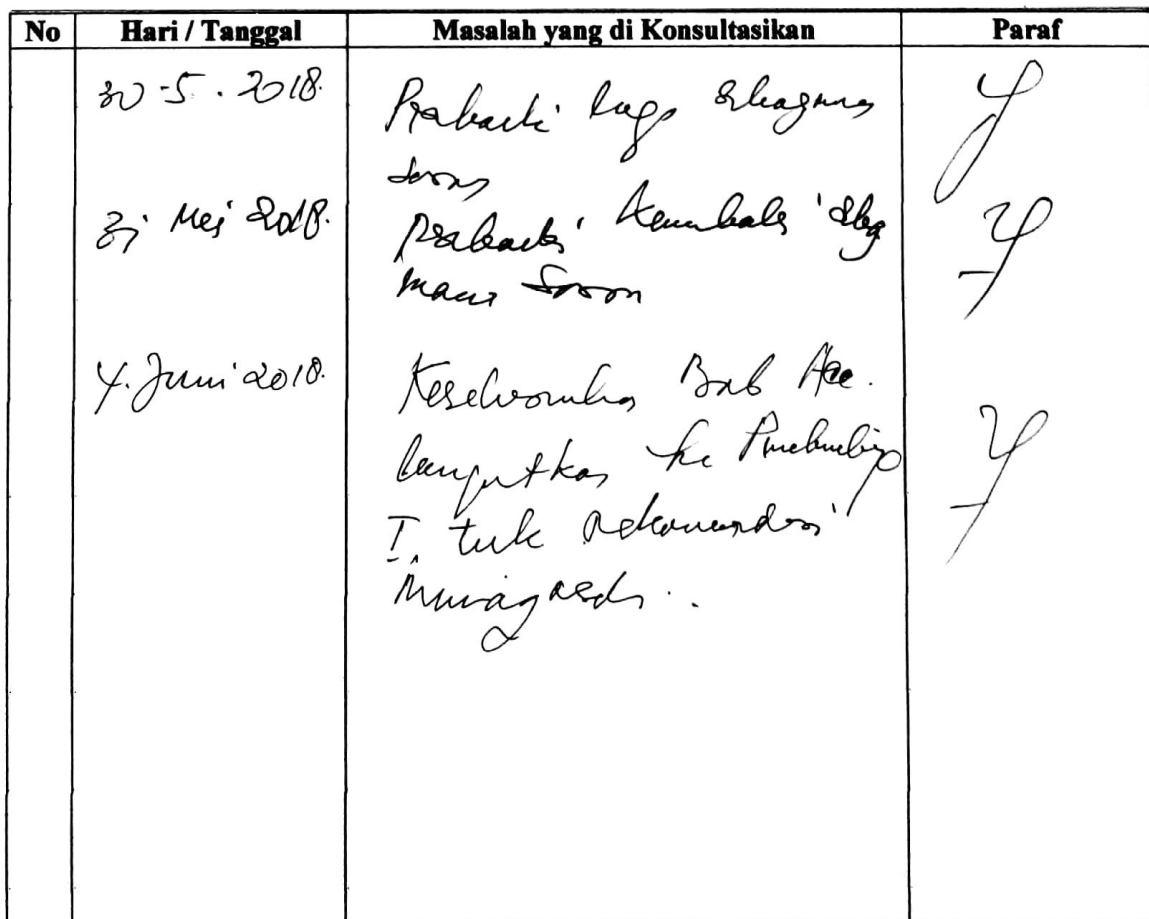 No Hari / Tanggal Masalah yang di Konsultasikan Paraf
30-5. 2018. Perbaiki
saran
31 Mei 2018. Perbaiki kembali sbg
mana saran
4. Juni 2018. Keseluruhan Bab Acc.
lanjutkan ke Pembimbing
I. tuk rekomendasi
munaqasah.